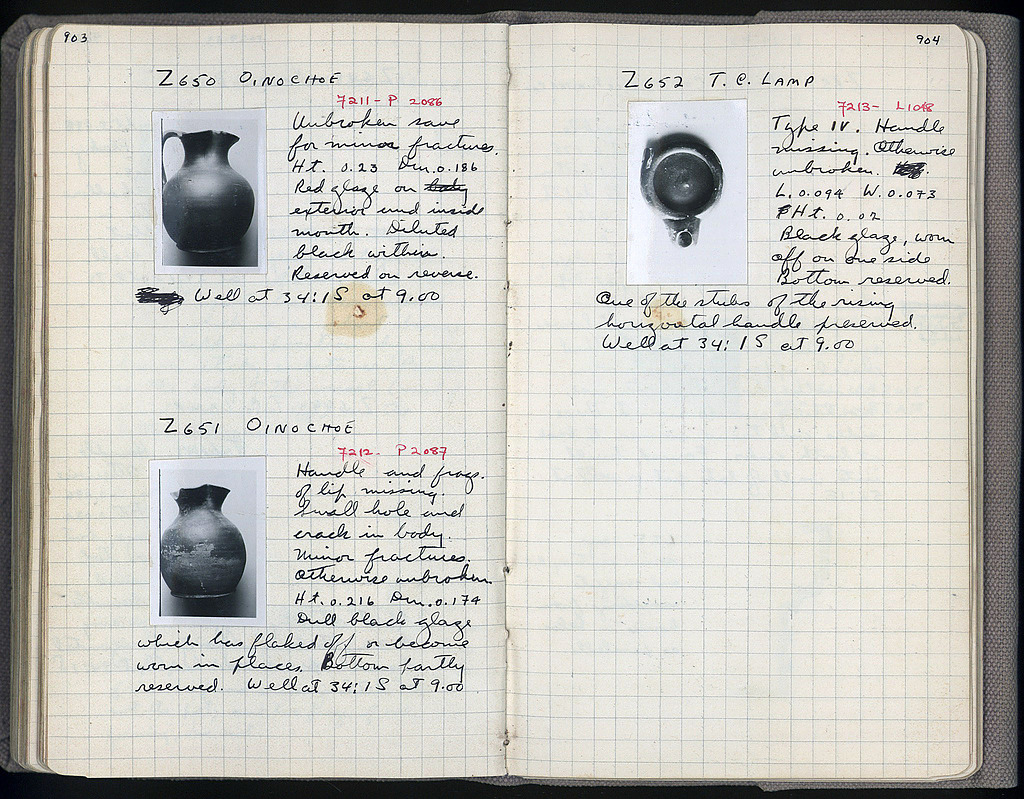 903
Z650 OINOCHOE
7211 - P 2086
Unbroken save
for minor fractures.
Ht. 0.23 Dm. 0.186
Red glaze on body
exterior and inside
mouth. Diluted
black within.
Reserved on reverse.
Well at 34:1S at 9.00
Z651 OINOCHOE
7212 - P 2087
Handle and frags.
of lip missing.
Small hole and
crack in body.
Minor fractures.
Otherwise unbroken
Ht. 0.216 Dm. 0.174
Dull black glaze
which has flaked off or become
worn in places. Bottom partly
reserved. Well at 34:1S at 9.00
904
Z652 T.C. LAMP
7213 - L1048
Type IV. Handle
missing. Otherwise
unbroken.
L. 0.094 W. 0.073
Ht. 0.02
Black glaze, worn
off on one side
Bottom reserved.
One of the stubs of the rising
horizontal handle preserved.
Well at 34:1S at 9.00